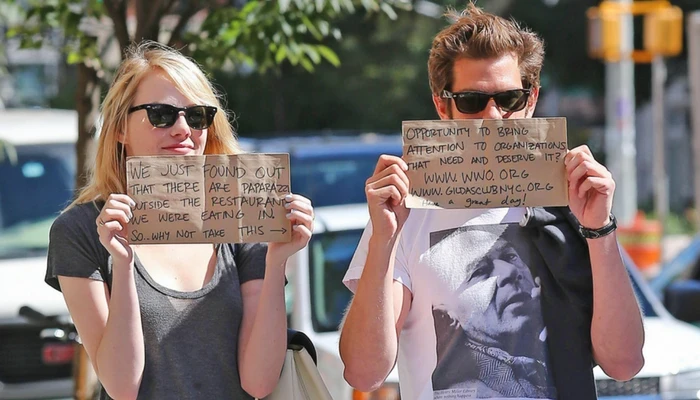 WE JUST FOUND OUT
THAT THERE ARE PAPARAZZI
OUTSIDE THE RESTAURANT
WE WERE EATING IN
SO..WHY NOT TAKE THIS →
OPPORTUNITY TO BRING
ATTENTION TO ORGANIZATIONS
THAT NEED AND DESERVE IT?
WWW.WWO.ORG
WWW.GILDASCLUBNYC.ORG
a great day!